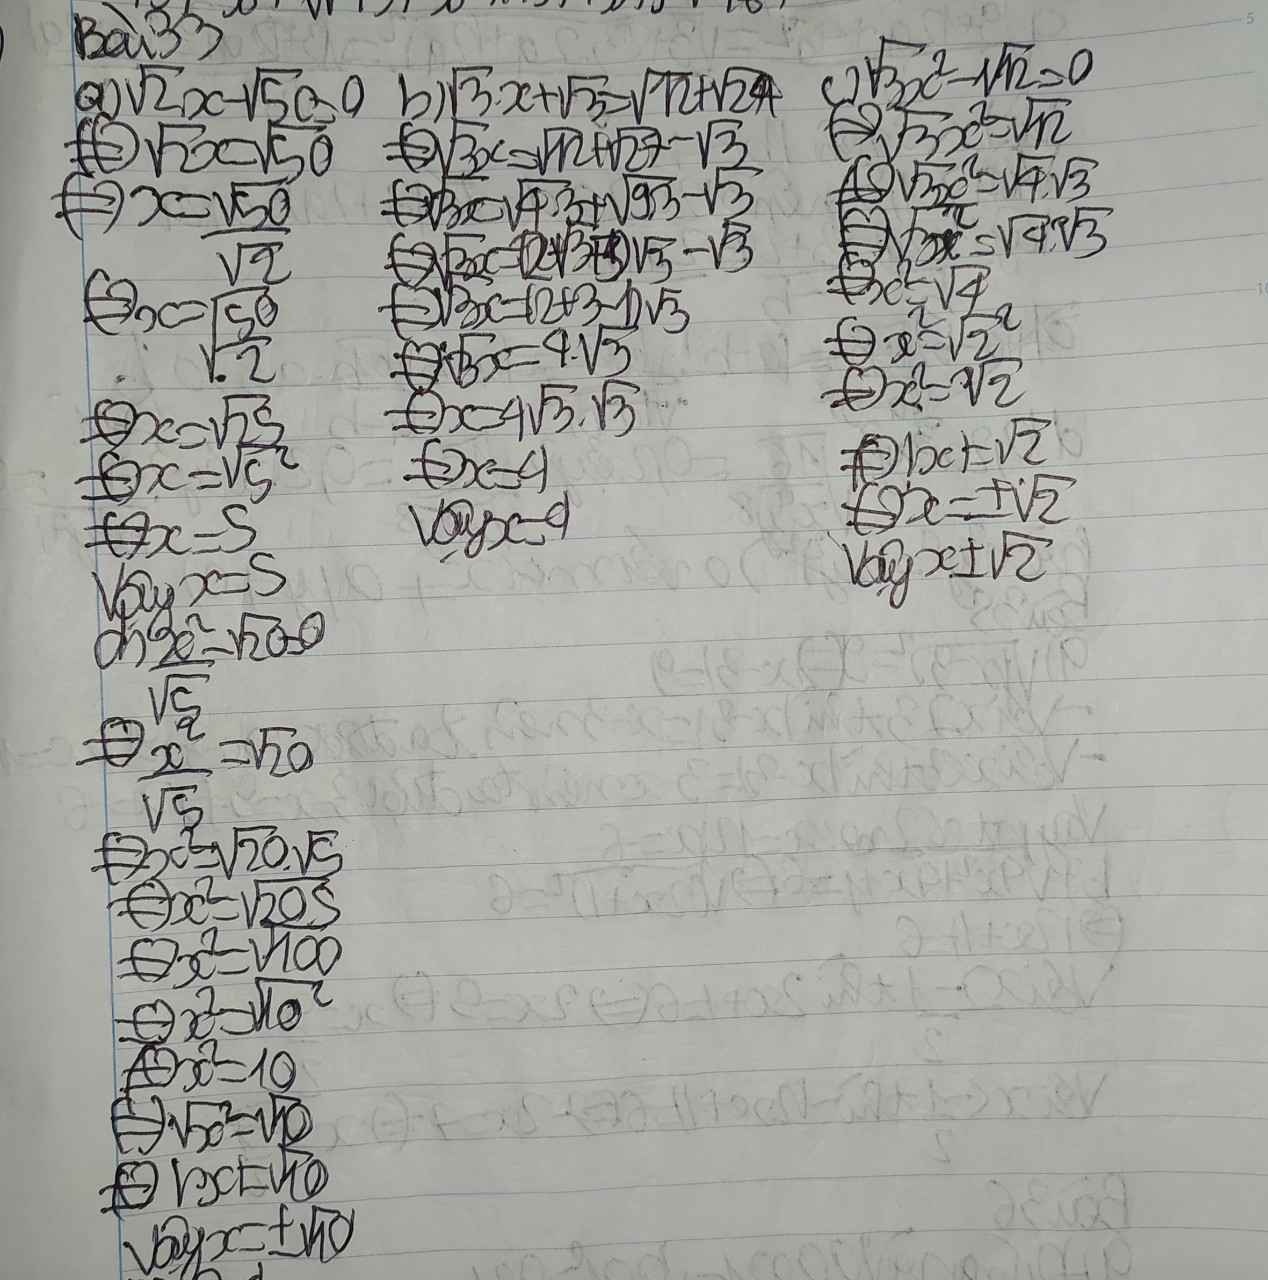 Bài 33
a) √2x-√50=0
⇔ √2x=√50
⇔ x=√50/√2
⇔ x=√(50/2)
⇔ x=√25
⇔ x=√5²
⇔ x=5
Vậy x=5
b) √3.x+√3=√12+√27
⇔ √3x=√12+√27-√3
⇔ √3x=√4.3+√9.3-√3
⇔ √3x=2√3+3√3-√3
⇔ √3x=(2+3-1)√3
⇔ √3x=4.√3
⇔ x=4√3.√3
⇔ x=4
Vậy x=4
c) √3x²-√12=0
⇔ √3x²=√12
⇔ √3x²=√4.√3
⇔ √3x²=√4.√3
⇔ x²=√4
⇔ x²=√2²
⇔ x²=√2
⇔ |x|=√2
⇔ x=±√2
Vậy x±√2
d) x²/√5-√20=0
⇔ x²/√5=√20
⇔ x²=√20.√5
⇔ x²=√20.5
⇔ x²=√100
⇔ x²=√10²
⇔ x²=10
⇔ √x²=√10
⇔ |x|=√10
Vậy x=±√10